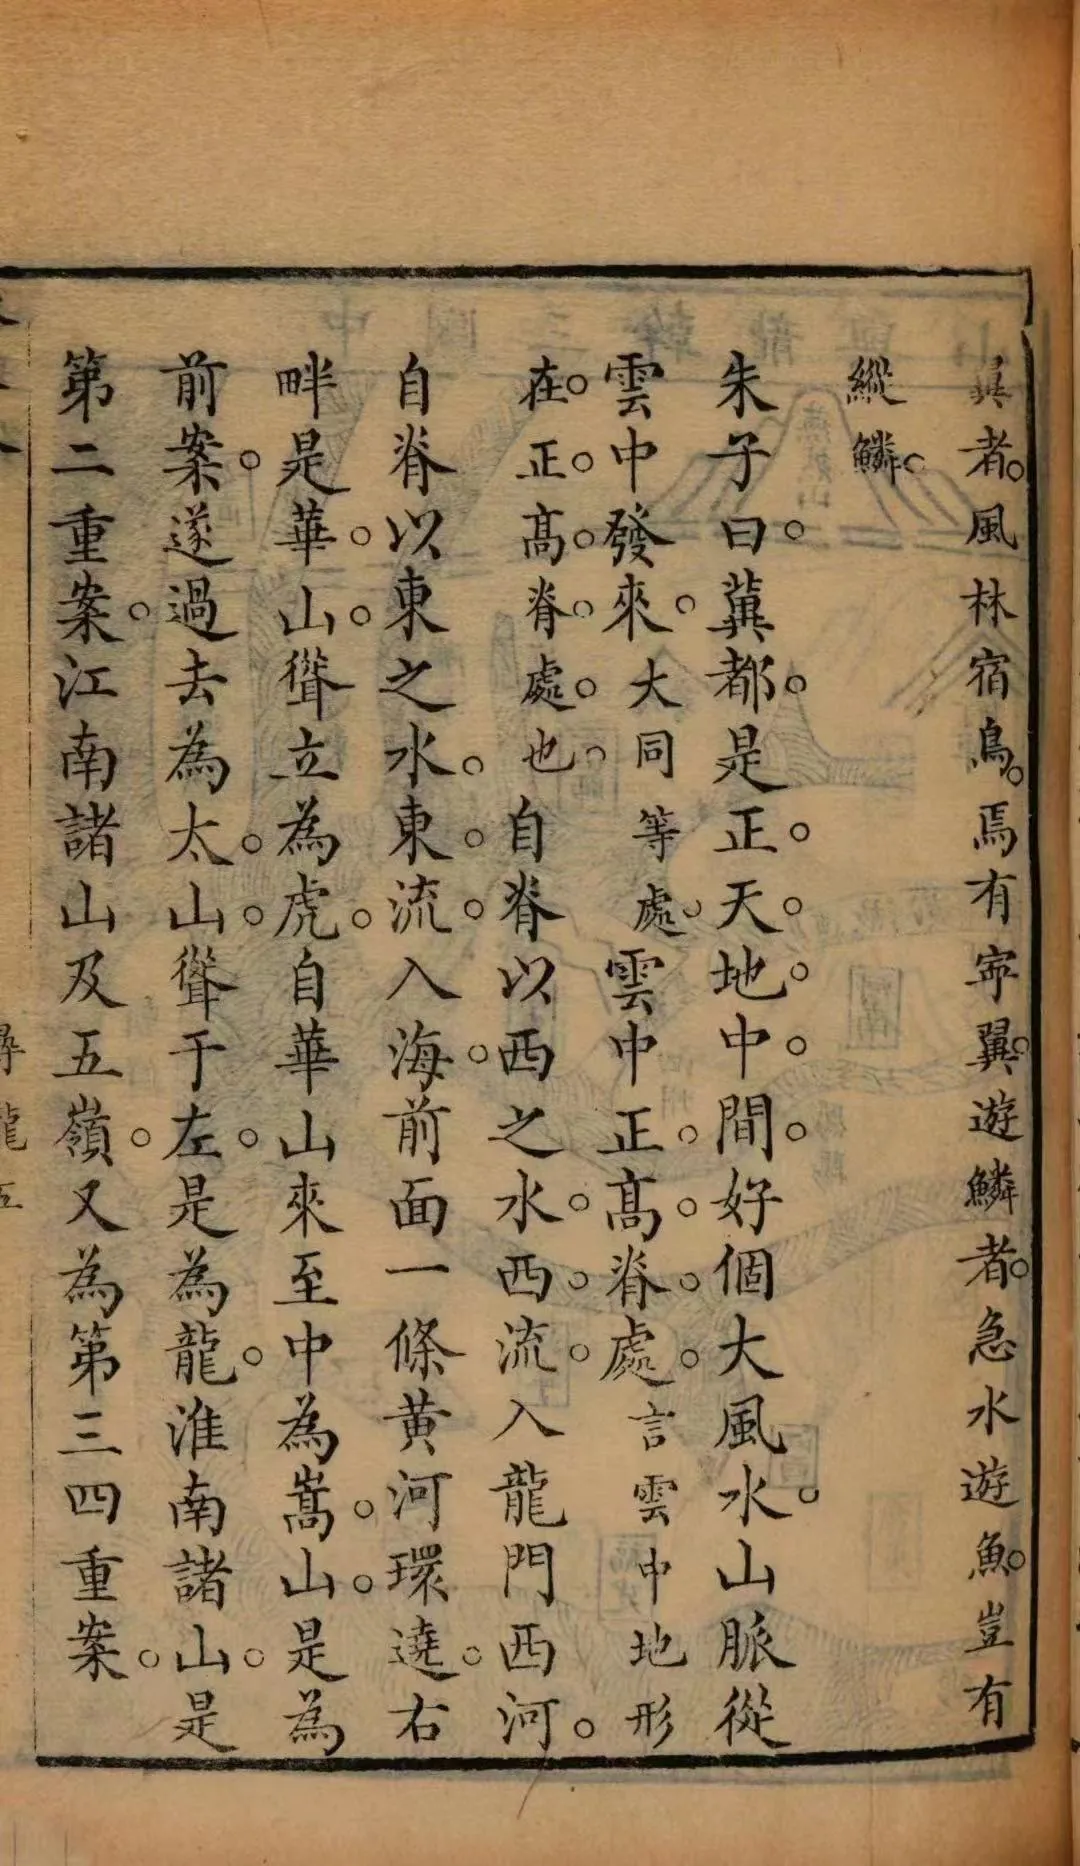 翼者。風林宿鳥。焉有寧翼。遊鱗者。急水遊魚。豈有
縱鱗。
朱子曰。冀都。是正。天。地。中。間。好個大風水。山脈從
雲中發來。大同等處。雲中正。髙。脊。處。言雲中地形
在。正。髙。脊。處。也。自脊以西之水。西。流。入龍門西河。
自脊以東之水。東。流。入海。前面一條黄河環遶。右
畔是華。山。聳立為虎。自華山來至中為嵩。山。是為
前案。遂過去為太。山。聳于左。是為龍。淮南諸山。是
第二重案。江南諸山及五嶺。又為第三四重案。
尋龍五